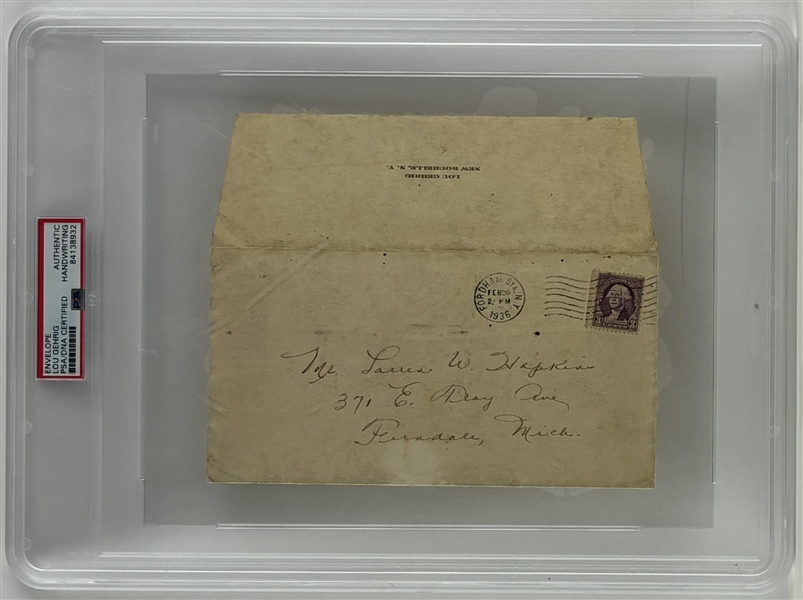 ENVELOPE
LOU GEHRIG
PSA/DNA CERTIFIED
AUTHENTIC
HANDWRITING
84138932
PSA
LOU GEHRIG
NEW ROCHELLE, N. Y.
FORDHAM STA. N.Y.
FEB 26
PM
1936
3 3
Mr. W. Hopkins
371 E. Ave
Ferndale, Mich.